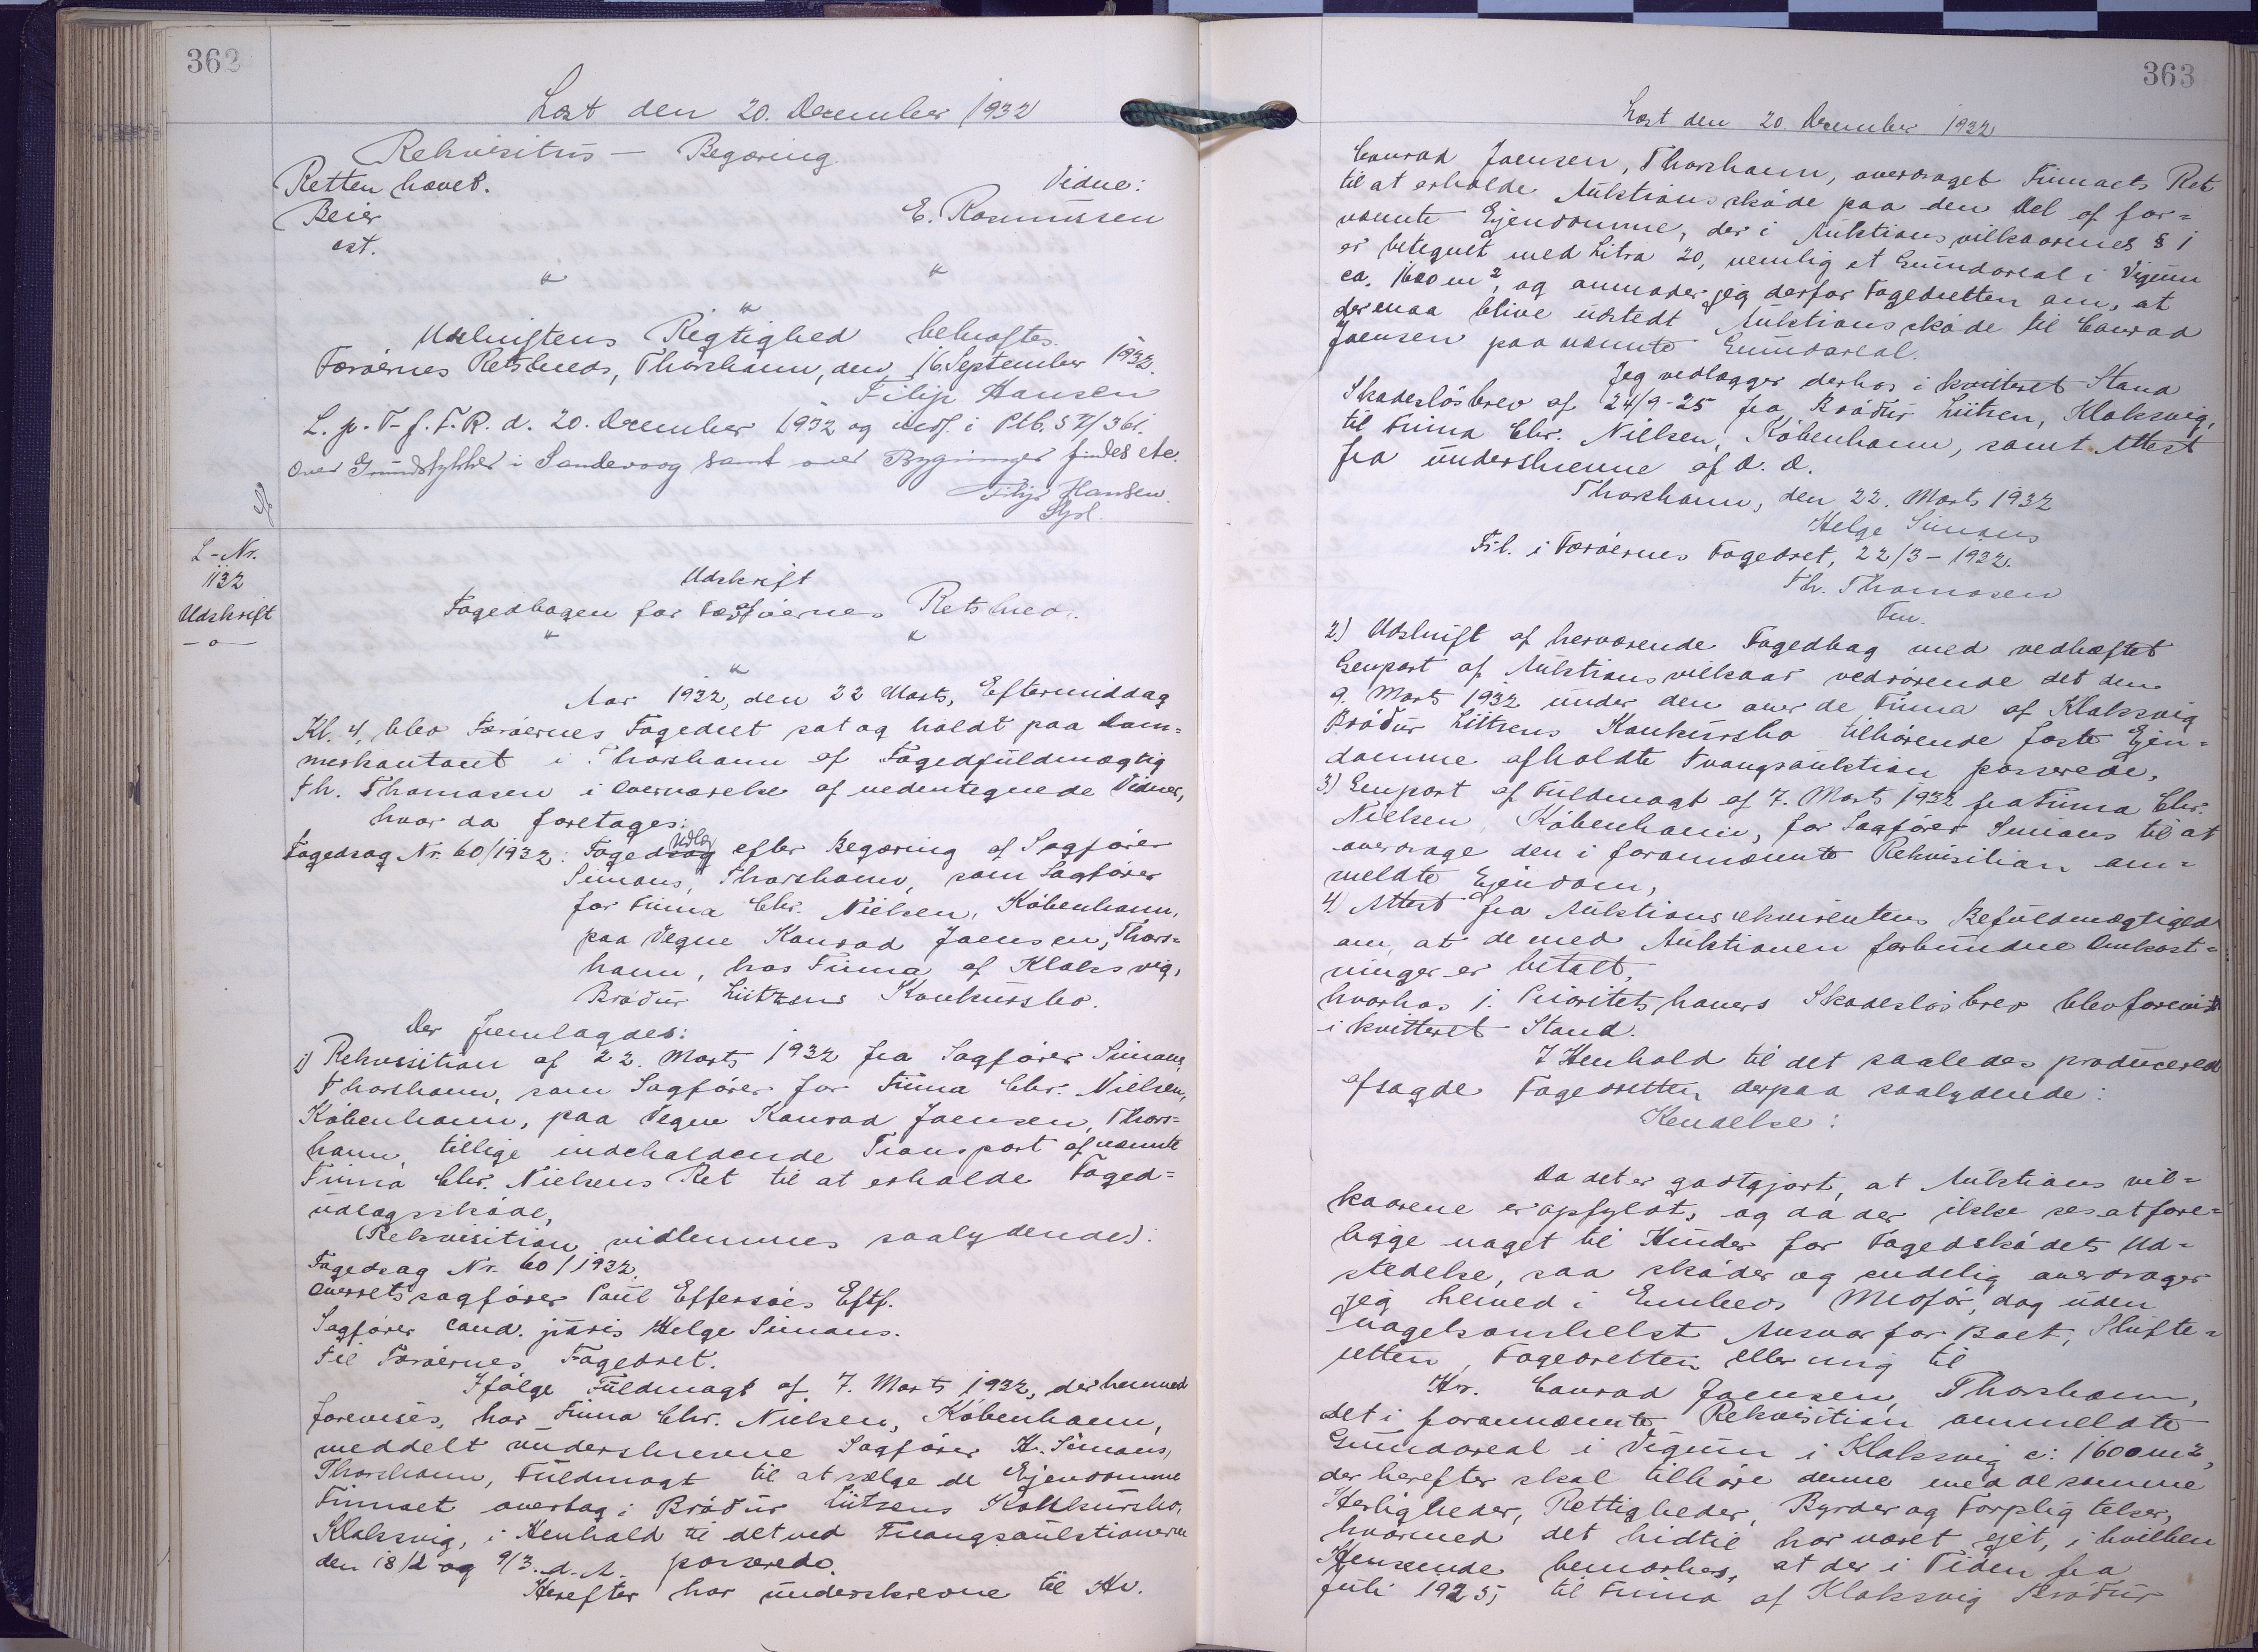 362
Læst den 20. December 1932
Rekvisitus — Begæring.
Retten hævet.
Vidne:
Beier
E. Rasmussen
cst.
" "
"
Udskriftens Rigtighed bekræftes.
Færøernes Retskreds, Thorshavn, den 16. September 1932.
Filip Hansen
L. p. T. f. F. R. d. 20. December 1932 og indf. i Ptb. S
Over Grundstykker i Sandevaag samt over Bygninger findes etc.
Filip Hansen.
L-Nr.
1132
Udskrift
-o-
Udskrift
af
Fogedbogen for Færøernes Retskred.
" "
"
Aar 1932, den 22 Marts, Eftermiddag
Kl. 4, blev Færøernes Fogedret sat og holdt paa Dom=
merkontoret i Thorshavn af Fogedfuldmægtig
Th. Thomasen i Overværelse af nedentegnede Vidner,
hvor da foretages:
Fogedsag Nr. 60/1932: Fogedudlæg efter Begæring af Sagfører
Simans, Thorshavn, som Sagfører
for Firma Chr. Nielsen, København,
paa Vegne Konrad Joensen, Thors=
havn, hos Firma af Klaksvig,
Bróður Lützens Konkursbo.
Der fremlagdes:
1) Rekvisition af 22. Marts 1932 fra Sagfører Simans,
Thorshavn, som Sagfører for Firma Chr. Nielsen,
København, paa Vegne Konrad Joensen, Thors=
havn, tillige indeholdende Transport af nævnte
Firma Chr. Nielsens Ret til at erholde Foged=
udlægsskøde,
(Rekvisition vidkennes saalydende):
Fogedsag Nr. 60/1932.
Overretssagfører Paul Effersøes Eftf.
Sagfører cand. juris Helge Simans.
Til Færøernes Fogedret.
Ifølge Fuldmagt af 7. Marts 1932, der hermed
forevises, har Firma Chr. Nielsen, København,
meddelt underskrevne Sagfører H. Simans,
Thorshavn, Fuldmagt til at sælge de Ejendomme
Firmaet overtog i Bróður Lützens Konkursbo,
Klaksvig, i Henhold til det ved Tvangsauktionerne
den 18/2 og 9/3. d. A. passerede.
Herefter har underskrevne til Hr.
363
Læst den 20. December 1932
Conrad Joensen, Thorshavn, overdraget Firmaets Ret
til at erholde Auktionsskøde paa den Del af for=
nævnte Ejendomme, der i Auktionsvilkaarenes § 1
er betegnet med Litra 20, nemlig et Grundareal i Vigum
ca. 1600 m², og anmoder jeg derfor Fogedretten om, at
der maa blive udstedt Auktionsskøde til Conrad
Joensen paa nævnte Grundareal.
Jeg vedlægger derhos i kvitteret Stand
Skadesløsbrev af 24/9-25 fra Bróður Lützen, Klaksvig,
til Firma Chr. Nielsen, København, samt Attest
fra underskrevne af D. D.
Thorshavn, den 22. Marts 1932
Helge Simans
Frl. i Færøernes Fogedret, 22/3-1932.
Th. Thomasen
Fm.
2) Udskrift af herværende Fogedbog med vedhæftet
Genpart af Auktionsvilkaar vedrørende det den
9. Marts 1932 under den over de Firma af Klaksvig
Bróður Lützens Konkursbo tilhørende faste Ejen=
domme afholdte Tvangsauktion passerede,
3) Genpart af Fuldmagt af 7. Marts 1932 fra Firma Chr.
Nielsen, København, for Sagfører Simans til at
overdrage den i forannævnte Rekvisition om=
meldte Ejendom,
4) Attest fra Auktionsrekvirentens Befuldmægtigede
om, at de med Auktionen forbundne Omkost=
ninger er betalt,
hvorhos 1. Prioritetshavers Skadesløsbrev blev forevist
i kvitteret Stand.
I Henhold til det saaledes producerede
afsagde Fogedretten derpaa saalydende:
Kendelse:
Da det er godtgjort, at Auktionsvil=
kaarene er opfyldt, og da der ikke ses at fore=
ligge noget til Hinder for Fogedskødets Ud=
stedelse, saa skøder og endelig overdrager
jeg herved i Embeds Medfør, dog uden
nogetsomhelst Ansvar for Boet, Skifte=
retten, Fogedretten eller mig til
Hr. Conrad Joensen, Thorshavn,
det i forannævnte Rekvisition ommeldte
Grundareal i Vigum i Klaksvig c: 1600 m²,
der herefter skal tilhøre denne med de samme
Herligheder, Rettigheder, Byrder og Forpligtelser,
hvormed det hidtil har været ejet, i hvilken
Henseende bemærkes, at der i Tiden fra
Juli 1925, til Firma af Klaksvig Bróður